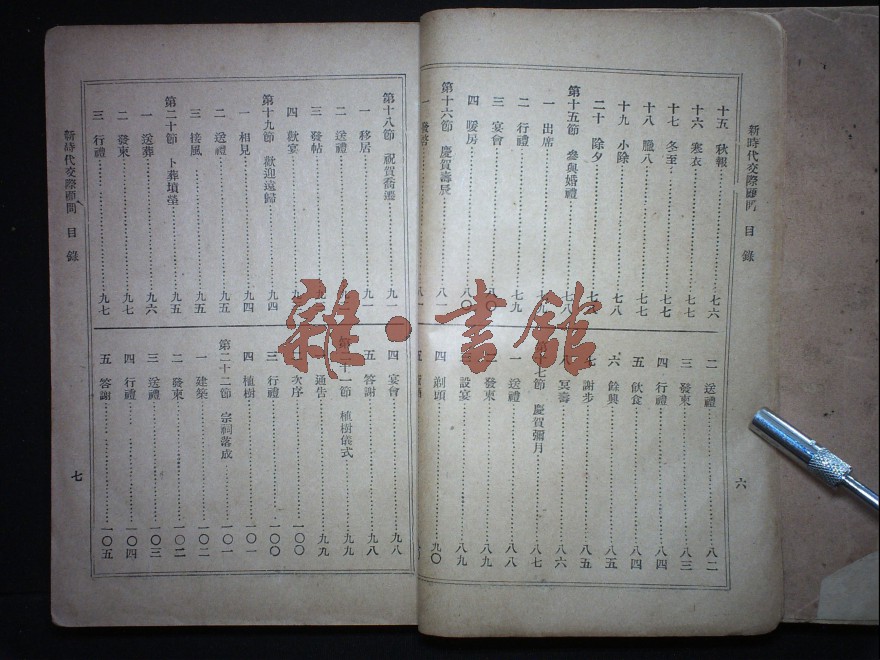 新時代交際顧問 目錄
十五 秋報 七六
十六 寒衣 七七
十七 冬至 七七
十八 臘八 七七
十九 小除 七八
二十 除夕 七八
第十五節 參與婚禮 七八
一 出席 七九
二 行禮 七九
三 宴會 八〇
四 暖房 八〇
第十六節 慶賀壽辰 八一
一 發啓
二 送禮 八二
三 發柬 八三
四 行禮 八四
五 飲食 八四
六 餘興 八五
七 謝步 八五
八 冥壽 八六
慶賀彌月 八七
一 送禮 八八
發柬 八九
設宴 八九
四 剃頭 九〇
六
雜·書館
第十八節 祝賀喬遷 九一
一 移居 九一
二 送禮
三 發帖
四 歡宴 九四
第十九節 歡迎遠歸 九四
一 相見 九四
二 送禮 九五
三 接風 九五
第二十節 卜葬墳塋 九五
一 送葬 九六
二 發柬 九七
三 行禮 九七
四 宴會 九八
五 答謝 九八
第二十一節 植樹儀式 九九
通告 九九
次序 一〇〇
三 行禮 一〇〇
四 植樹 一〇一
第二十二節 宗祠落成 一〇一
一 建築 一〇二
二 發柬 一〇二
三 送禮 一〇三
四 行禮 一〇四
五 答謝 一〇五
新時代交際顧問 目錄
七